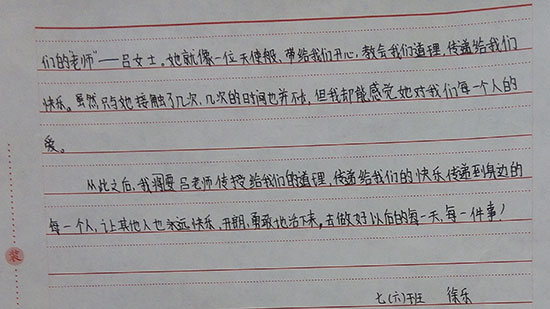 们的“老师”——吕女士。她就像一位天使般，带给我们开心，教会我们道理，传递给我们
快乐。虽然只与她接触了几次，几次的时间也并不长，但我却能感觉她对我们每一个人的
爱。
从此之后，我将要吕老师传授给我们的道理，传递给我们的快乐传递到身边的
每一个人，让其他人也永远快乐，开朗，勇敢地活下来，去做好以后的每一天，每一件事！
七（六）班 徐乐